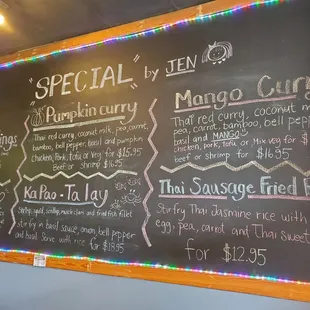 "SPECIAL" by JEN
Pumpkin curry
Thai red curry, coconut milk, pea, carrot,
bamboo, bell pepper, basil and pumpkin
Chicken, Pork, Tofu or Veg for $15.95
Beef or Shrimp for $16.95
KaPao-Talay
Shrimp, squid, scallop, mussel, clam and fried fish fillet
stir fry in basil sauce, onion, bell pepper
and basil. Serve with rice for $18.95
Mango Curry
Thai red curry, coconut m
pea, carrot, bamboo, bell pepp
basil and MANGO
chicken, pork, tofu or mix veg for $
beef or shrimp for $16.95
Thai Sausage Fried
Stir fry Thai Jasmine rice with
egg, pea, carrot and Thai sweet
for $12.95
ings